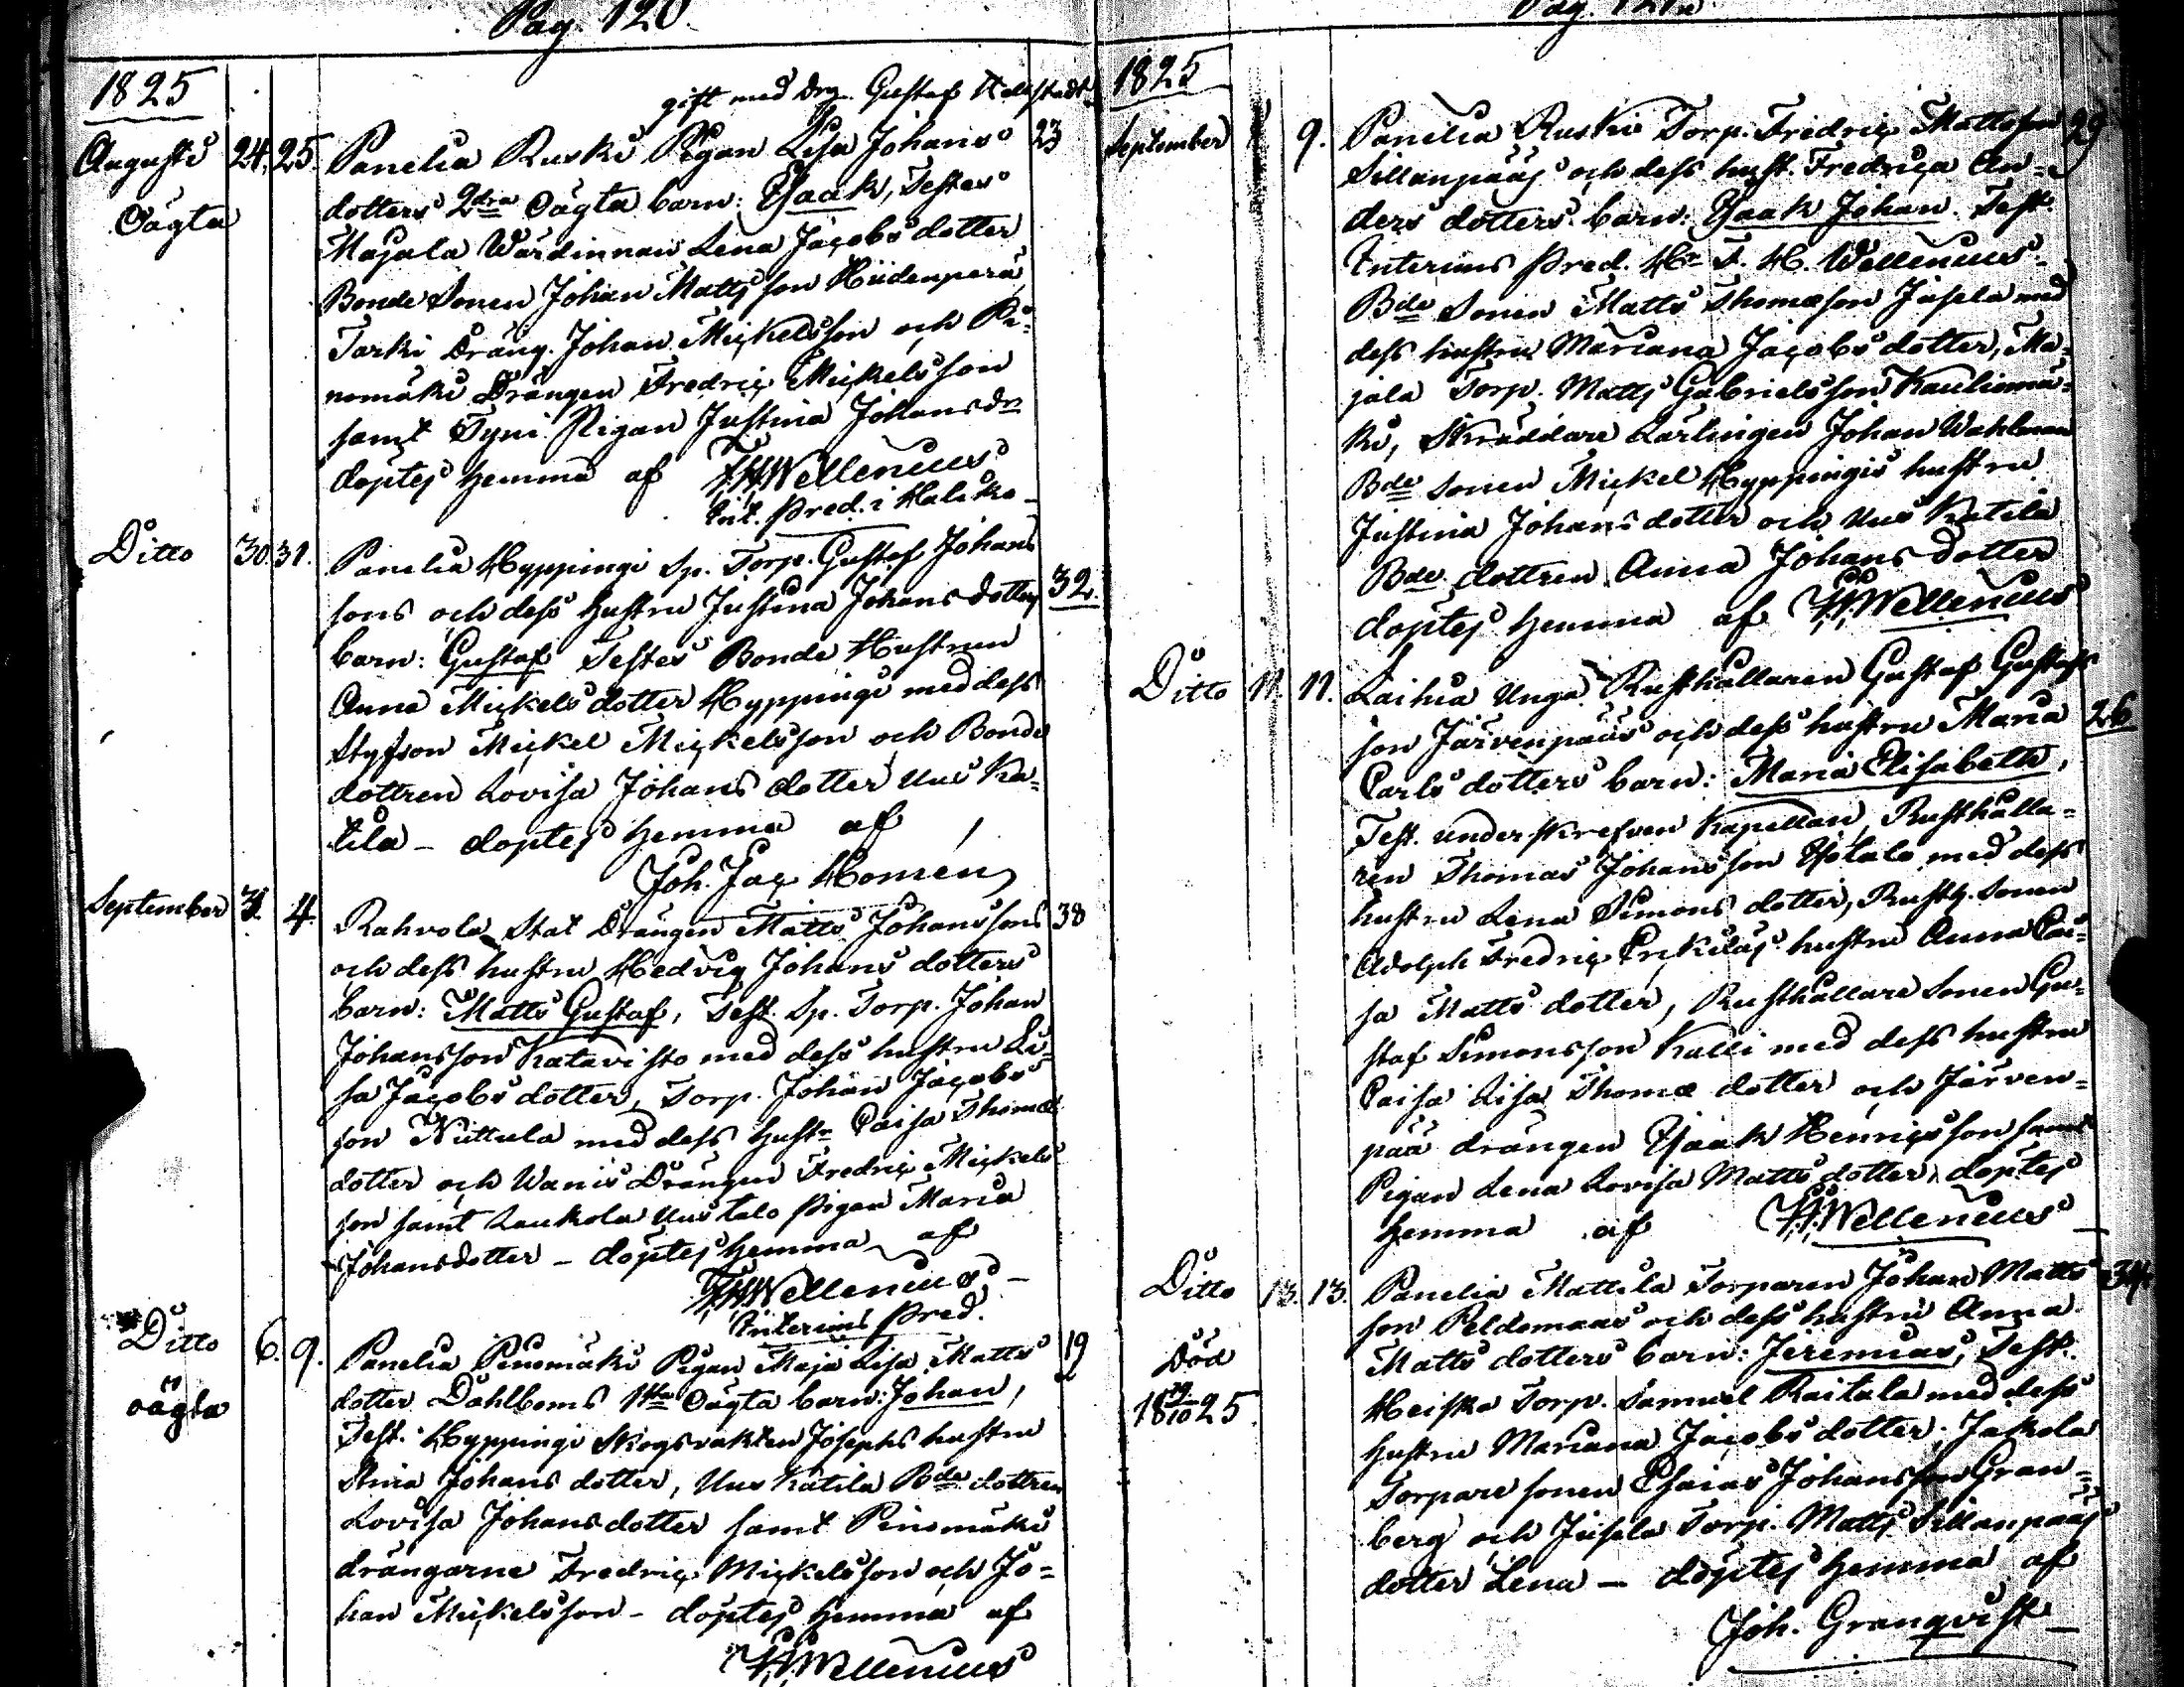 Pag. 120
1825
gift med Drg. Gustaf
Augusti 24. 25. Panelia Ruski Pigan Lisa Johans 23
Oägta
dotters 2dra Oägta barn: Isaak, Testes
Majala Wärdinnan Lena Jacobs dotter
Bonde Sonen Johan Matts son Hiidenperä
Tarki Dräng. Johan Mickelsson och Pi-
nomäki Drängen Fredric Mickelsson
samt Tyni Pigan Justina Johansdr
döptes hemma af FHWellenius
Int. Pred. i Haliko-
Ditto 30. 31. Panelia Hyppingi Sp. Torp. Gustaf Johans
sons och dess hustru Justina Johans dotters 32.
barn: Gustaf Testes Bonde Hustrun
Anna Mickels dotter Hyppingi med dess
Styfson Mickel Mickelsson och Bonde
dottren Lovisa Johans dotter Uus Ka-
tila - döptes hemma af
Joh. Jac. Homén
September 3. 4. Rahvola Stat Drängen Matts Johanssons 38
och dess hustru Hedvig Johans dotters
barn: Matts Gustaf, Test. Sp. Torp. Johan
Johansson Katavisto med dess hustru Li-
sa Jacobs dotter, Torp. Johan Jacobs
son Niittula med dess hustr. Caisa Thomæ
dotter och Wanis Drängen Fredric Mickels
son samt Laukola Uustalo Pigan Maria
Johansdotter - döptes hemma af
FHWellenius -
Interims Pred.
Ditto 6. 9. Panelia Pinomäki Pigan Maja Lisa Matts 19
oägta
dotter Dahlboms 1sta Oägta barn: Johan,
Test. Hyppingi Skogsvakten Josephs hustru
Stina Johans dotter, Uus Katila Bde dottren
Lovisa Johansdotter samt Pinomäki
drängarne Fredric Mickelsson och Jo-
han Mickelsson - döptes hemma af
FHWellenius
Pag. 121
1825
September 9. Panelia Ruski Torp. Fredric Mattsson 29
Sillanpääs och dess hust. Fredrica An-
ders dotters barn: Isaak Johan. Test.
Interims Pred. Hr F. H. Wellenius.
Bde Sonen Matts Thomæson Jusela med
dess hustru Mariana Jacobs dotter, Ma-
jala Torp. Matts Gabrielsson Kauliomä-
ki, Skräddare Lärlingen Johan Wahlman
Bde sonen Mickel Hyppingis hustru
Justina Johans dotter och Uus Katila
Bde dottren Anna Johans dotter
döptes hemma af FHWellenius
Ditto 11. 11. Laihia Unga Rusthållaren Gustaf Gustafs
son Järvenpääs och dess hustru Maria 26
Carls dotters barn: Maria Elisabeth,
Test. underskrefven Kapellan, Rusthålla-
ren Thomas Johansson Isotalo med dess
hustru Lena Simons dotter, Rusth. sonen
Adolph Fredric Erkiläs hustru Anna Cai-
sa Matts dotter, Rusthållare Sonen Gu-
staf Simonsson Kalli med dess hustru
Caisa Lisa Thomæ dotter och Järven-
pää drängen Isaak Henricsson samt
Pigan Lena Lovisa Matts dotter, döptes
hemma af FHWellenius
Ditto 13. 13. Panelia Mattila Torparen Johan Matts 34
son Peldomaas och dess hustru Anna
Död
Matts dotters barn: Jeremias, Test.
18 19/10 25
Heiska Torp. Samuel Raitala med dess
hustru Mariana Jacobs dotter, Jakola
Torpare sonen Esaias Johansson Gran-
berg och Jusela Torp. Matts Sillanpääs
dotter Lena - döptes hemma af
Joh. Granqvist